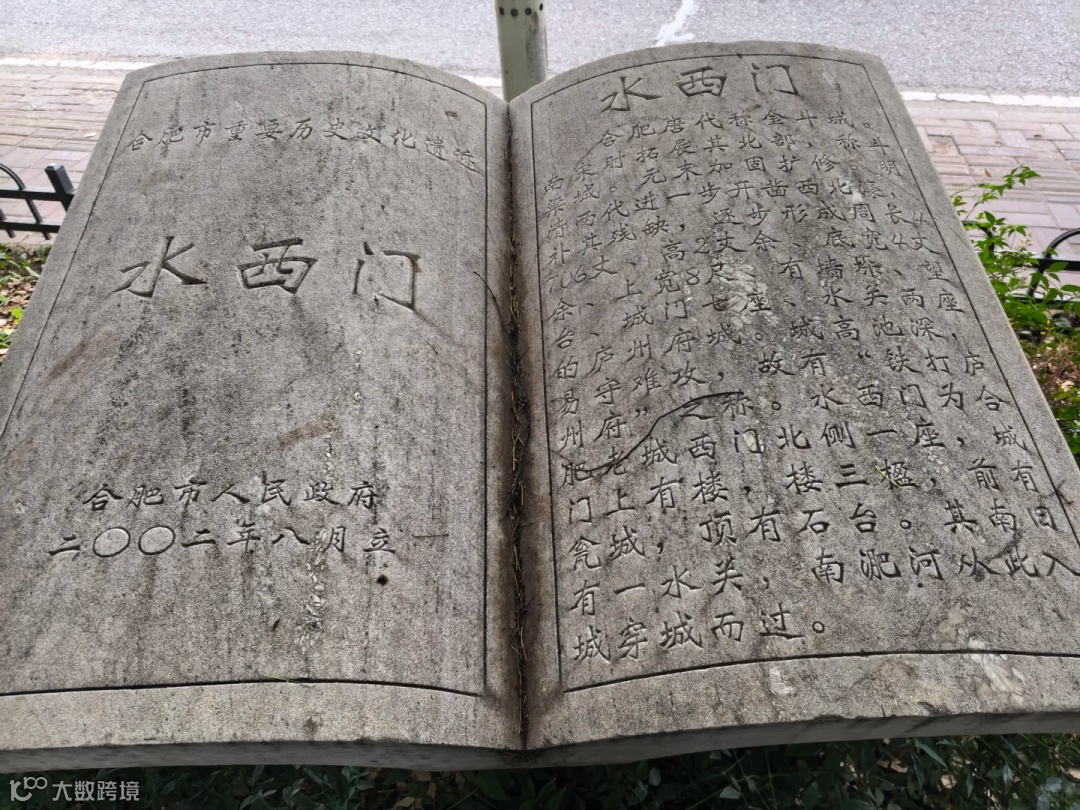 合肥市重要历史文化遗迹
水西门
合肥市人民政府
二〇〇二年八月立
水西门
合肥唐代称金斗城。
南宋时拓展其北部,称斗
梁城。元末加固扩修,明
清两代进一步开凿西北濠,
补其残缺,逐步形成周长4
706丈、高2丈余、底宽4丈
余、上宽8尺、有墙垛、望
台、城门七座、水关两座,
的庐州府城。城高池深,
易守难攻,故有“铁打庐
州府”之称。水西门为合
肥老城西门,北侧一座,城
门上有楼,楼三楹,前有
瓮城,顶有石台。其南旧
有一水关,南淝河从此入
城穿城而过。
大数跨境